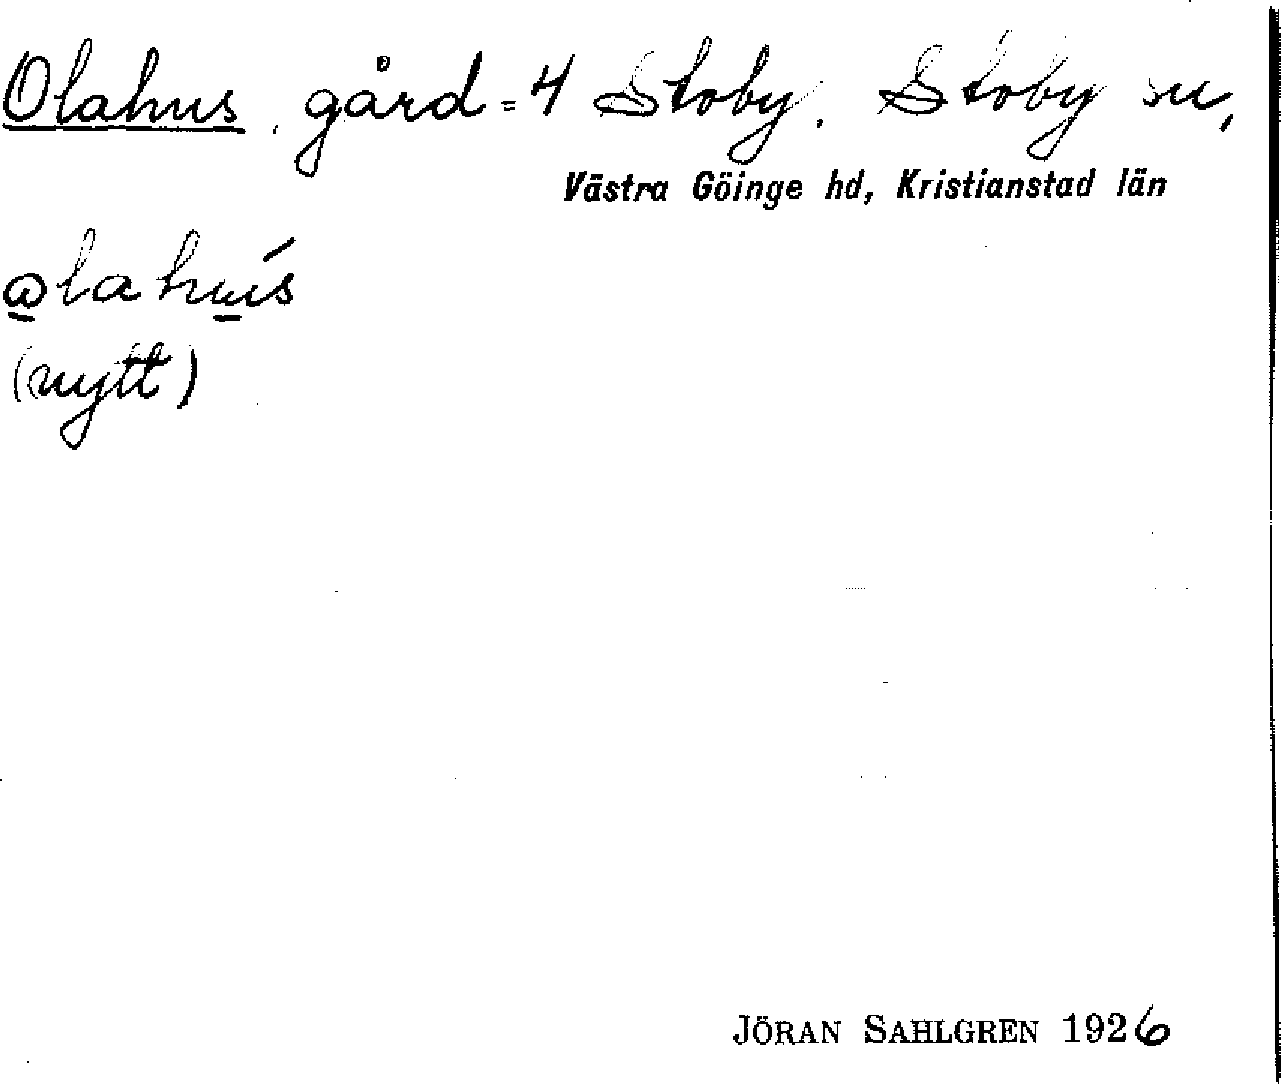 Olahus, gård = 4 Stoby. Stoby sn,
Västra Göinge hd, Kristianstad län
(nytt)
JÖRAN SAHLGREN 1926